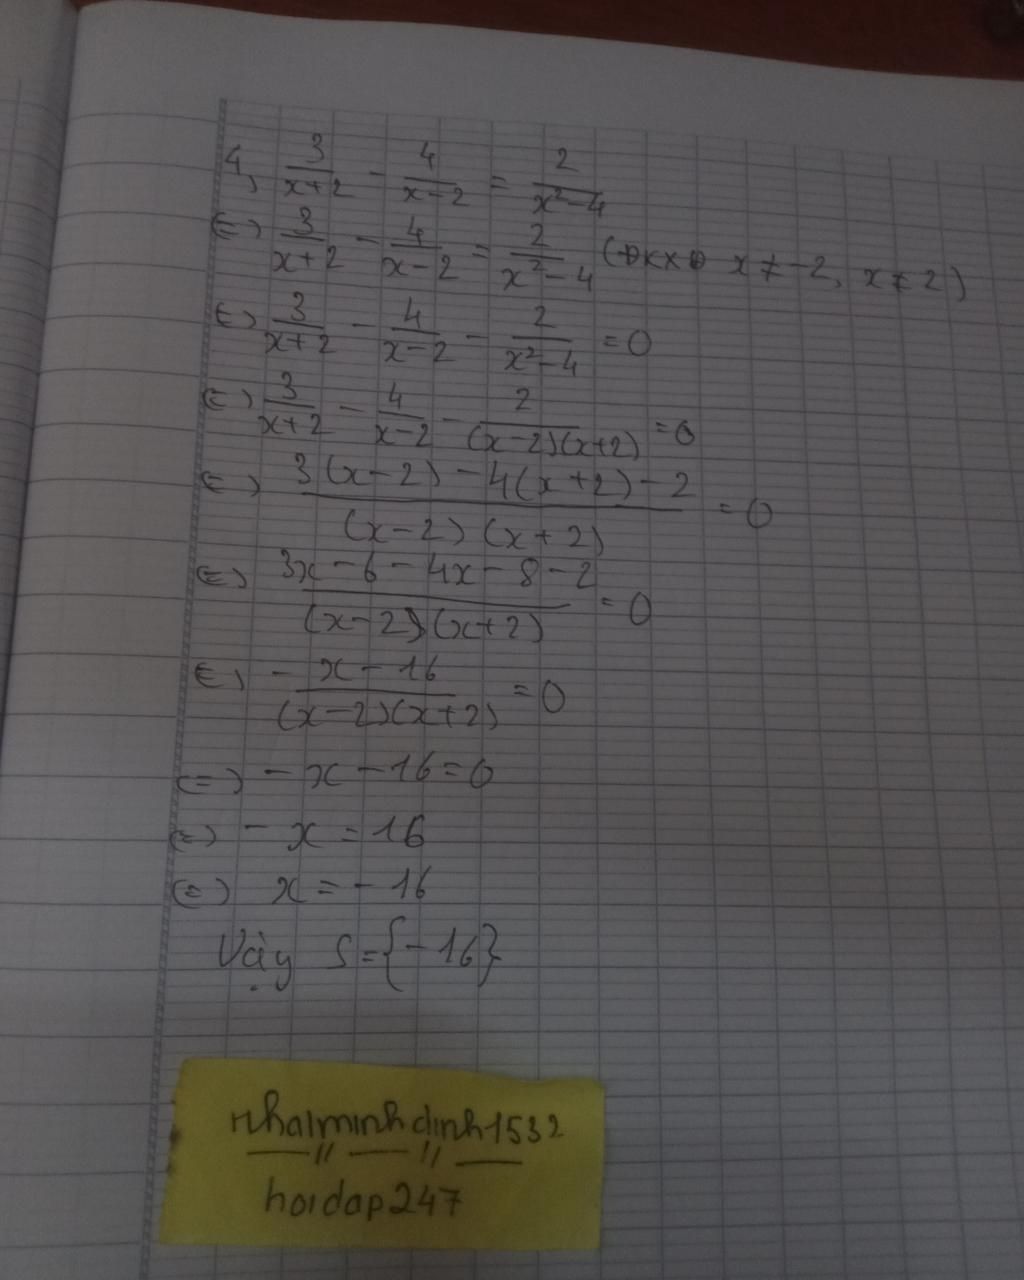 4, 3/(x+2) - 4/(x-2) = 2/(x²-4)
(=) 3/(x+2) - 4/(x-2) = 2/(x²-4) (ĐKXĐ x ≠ -2, x ≠ 2)
(=) 3/(x+2) - 4/(x-2) - 2/(x²-4) = 0
(=) 3/(x+2) - 4/(x-2) - 2/((x-2)(x+2)) = 0
(=) (3(x-2) - 4(x+2) - 2)/((x-2)(x+2)) = 0
(=) (3x - 6 - 4x - 8 - 2)/((x-2)(x+2)) = 0
(=) (-x - 16)/((x-2)(x+2)) = 0
(=) -x - 16 = 0
(=) -x = 16
(=) x = -16
Vậy S = {-16}
nhaiminhdinh1532
hoidap247